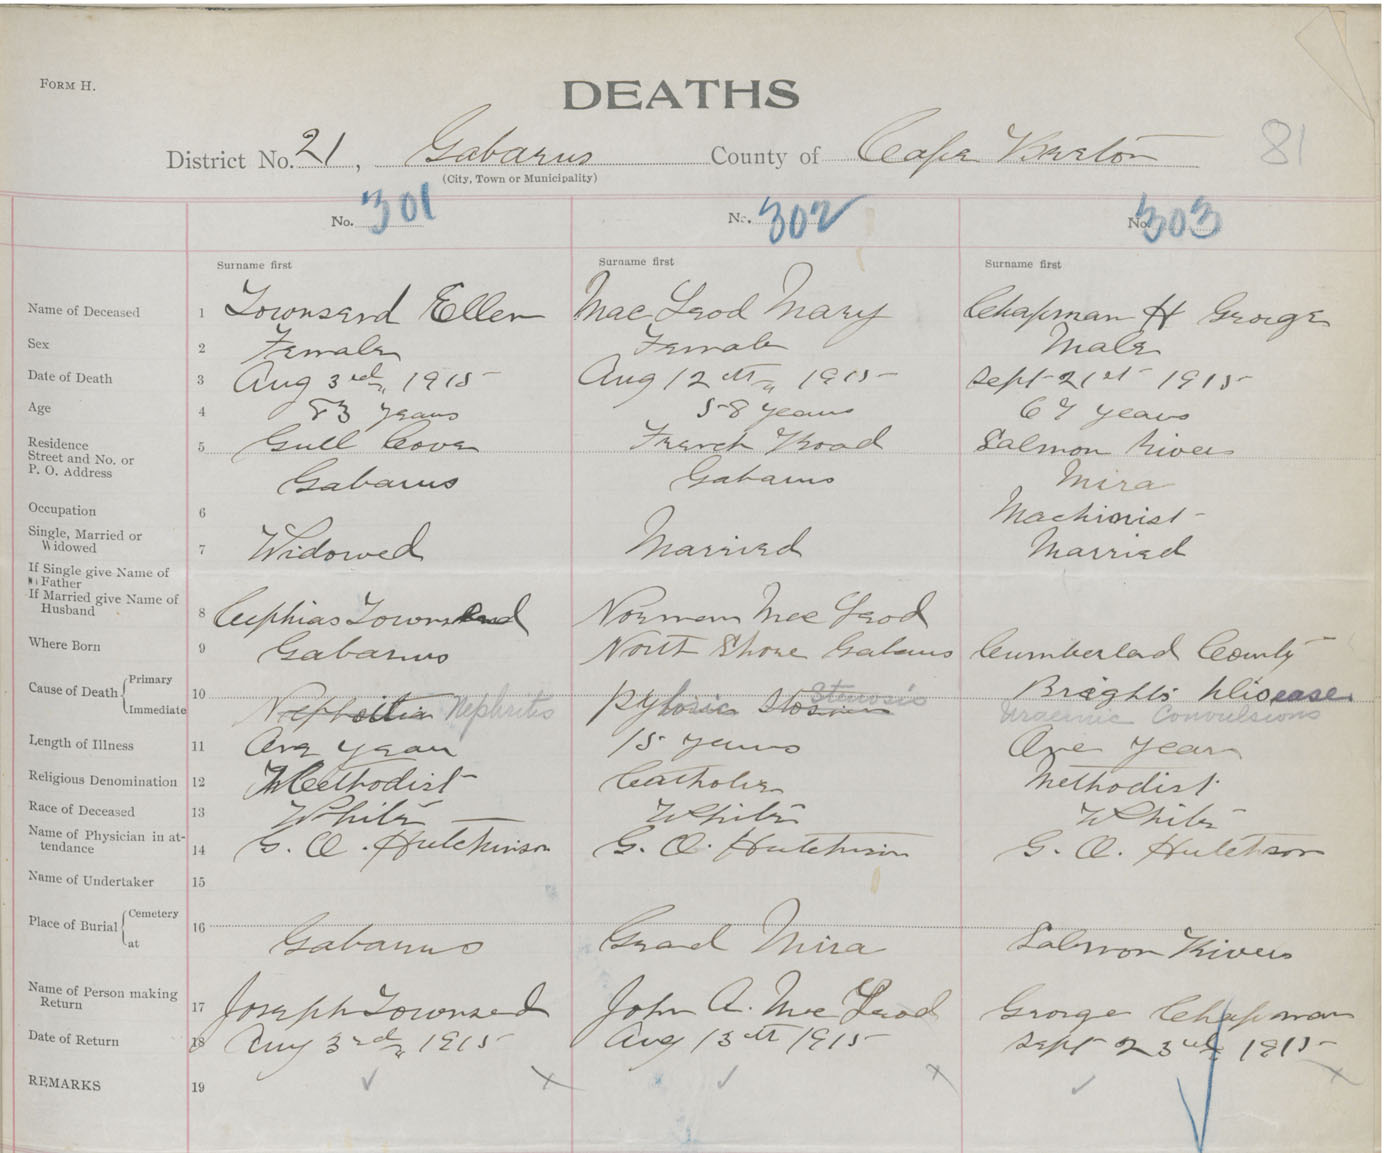 FORM H.
DEATHS
81
District No. 21, Gabarus County of Cape Breton
(City, Town or Municipality)
No. 301 No. 302 No. 303
Surname first Surname first Surname first
Name of Deceased 1 Townsend Ellen Mac Leod Mary Chapman H George
Sex 2 Female Female Male
Date of Death 3 Aug 3rd, 1915 Aug 12th, 1915 Sept 21st 1915
Age 4 83 years 58 years 67 years
Residence
Street and No. or 5 Gull Cove French Road Salmon River
P. O. Address Gabarus Gabarus Mira
Occupation 6 Machinist
Single, Married or
Widowed 7 Widowed Married Married
If Single give Name of
Father
If Married give Name of
Husband 8 Cephias Townsend Norman Mac Leod
Where Born 9 Gabarus North Shore Gabarus Cumberlad County
Cause of Death { Primary 10 Pyloric Stenosis Brights Disease
Immediate Nephritis Uraemic Convulsions
Length of Illness 11 One year 15 years One year
Religious Denomination 12 Methodist Catholic Methodist
Race of Deceased 13 White White White
Name of Physician in at-
tendance 14 G. O. Hutchinson G. O. Hutchinson G. O. Hutchson
Name of Undertaker 15
Place of Burial { Cemetery 16
at Gabarus Grand Mira Salmon River
Name of Person making
Return 17 Joseph Townsend John A. Mac Leod George Chapman
Date of Return 18 Aug 3rd, 1915 Aug 13th 1915 Sept 23rd, 1915
REMARKS 19